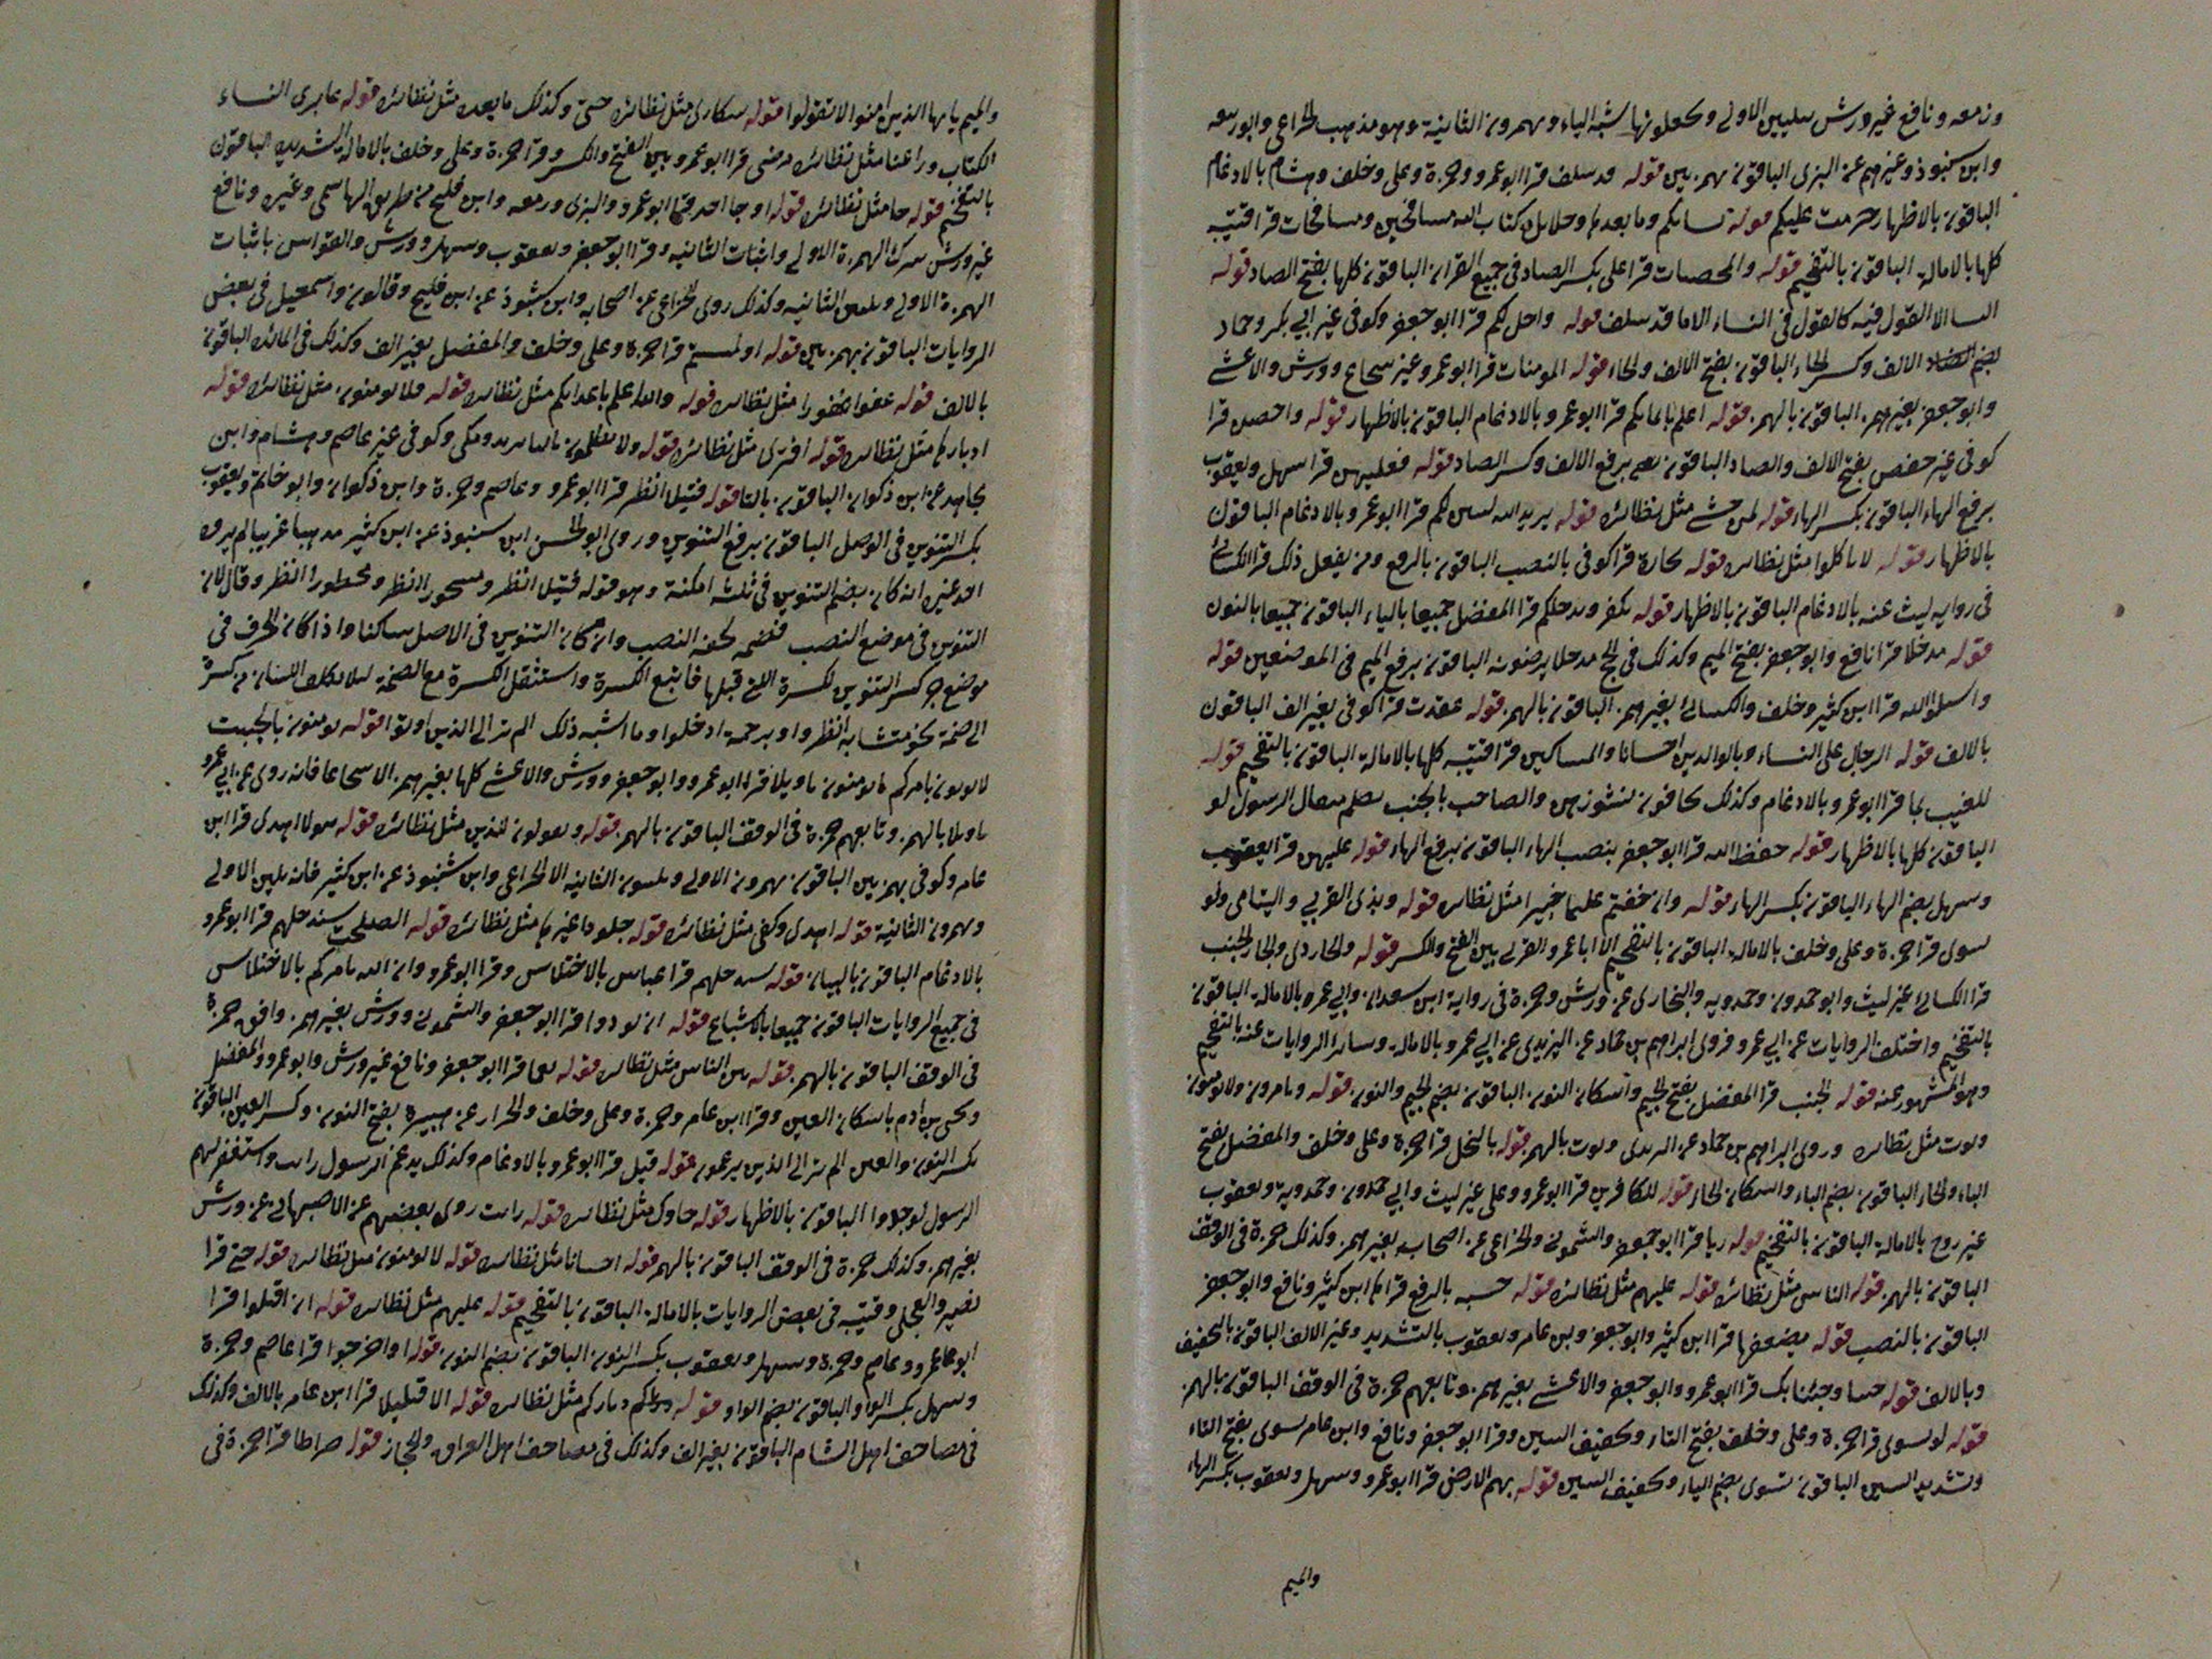 وزمعه ونافع غير ورش بتليين الاولى ويجعلونها شبه الياء ويهمزون الثانية وهو مذهب الخزاعي وابو ربيعه
وابن شنبوذ وغيرهم عن البزى الباقون بهمزتين قوله قد سلف قرا ابو عمرو وحمزة وعلى وخلف وهشام بالادغام
الباقون بالاظهار حرمت عليكم قوله نسائكم وما بعدها وحلايل وكتاب الله مسافحين ومسافحات قرا قتيبه
كلها بالامالة الباقون بالتفخيم قوله والمحصنات قرا على بكسر الصاد فى جميع القران الباقون كلها بفتح الصاد قوله
النسا الا القول فيه كالقول فى النساء الا ما قد سلف قوله واحل لكم قرا ابو جعفر وكوفى غير ابي بكر وحماد
بضم الالف وكسر الحاء الباقون بفتح الالف والحاء قوله المومنات قرا ابو عمرو غير شجاع وورش والاعشے
وابو جعفر بغير همز الباقون بالهمز قوله اعلم بايمانكم قرا ابو عمرو بالادغام الباقون بالاظهار قوله واحصن قرا
كوفى غير حفص بفتح الالف والصاد الباقون برفع الالف وكسر الصاد قوله فعليهن قرا سهل ويعقوب
برفع الهاء الباقون بكسر الهاء قوله لمن خشے مثل نظائره قوله يريد الله ليبين لكم قرا ابو عمرو بالادغام الباقون
بالاظهار قوله لا تاكلوا مثل نظائره قوله تجارة قرا كوفى بالنصب الباقون بالرفع ومن يفعل ذلك قرا الكسائى
فى روايه ليث عنه بالادغام الباقون بالاظهار قوله يكفر ويدخلكم قرا المفضل جميعا بالياء الباقون جميعا بالنون
قوله مدخلا قرا نافع وابو جعفر بفتح الميم وكذلك فى الحج مدخلا يرضونه الباقون برفع الميم فى الموضعين قوله
واسئلوا الله قرا ابن كثير وخلف والكسائى بغير همز الباقون بالهمز قوله عقدت قرا كوفى بغير الف الباقون
بالالف قوله الرجال على النساء وبالوالدين احسانا والمساكين قرا قتيبه كلها بالامالة الباقون بالتفخيم قوله
للغيب بما قرا ابو عمرو بالادغام وكذلك تخافون نشوزهن والصاحب بالجنب يظلم مثقال الرسول لو
الباقون كلها بالاظهار قوله حفظ الله قرا ابو جعفر بنصب الهاء الباقون برفع الهاء قوله عليهن قرا يعقوب
وسهل بضم الهاء الباقون بكسر الهاء قوله وان خفتم عليما خبيرا مثل نظائره قوله وبذى القربى واليتامى ولو
سوى قرا حمزة وعلى وخلف بالامالة الباقون بالتفخيم الا ابا عمرو القربى بين الفتح والكسر قوله والجار ذى والجار الجنب
قرا الكسائى غير ليث وابو حمدون وحمدويه والبخارى عن ورش وحمزة فى رواية ابن سعدان وابي عمرو بالامالة الباقون
بالتفخيم واختلف الروايات عن ابي عمرو فروى ابراهيم بن حماد عن اليزيدى عن ابي عمرو بالامالة وسائر الروايات عنه بالتفخيم
وهو المشهور عنه قوله الجنب قرا المفضل بفتح الجيم واسكان النون الباقون بضم الجيم والنون قوله ويامرون ولا يومنون
ويوت مثل نظائره وروى ابراهيم بن حماد عن اليزيدى ويوت بالهمز قوله بالبخل قرا حمزة وعلى وخلف والمفضل بفتح
الباء والخاء الباقون بضم الباء واسكان الخاء قوله للكافرين قرا ابو عمرو وعلى غير ليث وابي حمدون وحمدويه ويعقوب
غير روح بالامالة الباقون بالتفخيم قوله ريا قرا ابو جعفر والشمونى والخزاعى عن اصحابه بغير همز وكذلك حمزة فى الوقف
الباقون بالهمز قوله الناس مثل نظائره قوله عليهم مثل نظائره قوله حسنه بالرفع قراها ابن كثير ونافع وابو جعفر
الباقون بالنصب قوله يضعفها قرا ابن كثير وابو جعفر وابن عامر ويعقوب بالتشديد وغير الالف الباقون بالتخفيف
وبالالف قوله جينا وجئنا بك قرا ابو عمرو وابو جعفر والاعشے بغير همز وتابعهم حمزة فى الوقف الباقون بالهمز
قوله لو تسوى قرا حمزة وعلى وخلف بفتح التاء وتخفيف السين وقرا ابو جعفر ونافع وابن عامر تسوى بفتح التاء
وتشديد السين الباقون تسوى بضم التاء وتخفيف السين قوله بهم الارض قرا ابو عمرو وسهل ويعقوب بكسر الهاء
والميم
والميم يايها الذين امنوا لا تقولوا قوله سكارى مثل نظائره حتى وكذلك ما بعده مثل نظائره قوله عابرى النساء
الكتاب وراعنا مثل نظائره مرضى قرا ابو عمرو بين الفتح والكسر وقرا حمزة وعلى وخلف بالامالة الشديده الباقون
بالتفخيم قوله جا مثل نظائره قوله او جا احد قرا ابو عمرو والبزى وزمعه وابن فليح من طريق الهاشمى وغيره ونافع
غير ورش بترك الهمزة الاولى واثبات الثانيه وقرا ابو جعفر ويعقوب وسهل وورش والقواس باثبات
الهمزة الاولى وتليين الثانيه وكذلك روى الخزاعى عن اصحابه وابن شنبوذ عن ابن فليح وقالون واسمعيل فى بعض
الروايات الباقون بهمزتين قوله او لمستم قرا حمزة وعلى وخلف والمفضل بغير الف وكذلك فى المائده الباقون
بالالف قوله عفوا غفورا مثل نظائره قوله والله اعلم باعدايكم مثل نظائره قوله فلا يومنون مثل نظائره قوله
ادبارها مثل نظائره قوله افترى مثل نظائره قوله ولا يظلمون ومكى وكوفى غير عاصم وهشام وابن
مجاهد عن ابن ذكوان الباقون بالتا قوله فتيلا انظر قرا ابو عمرو وعاصم وحمزة وابن ذكوان وابو حاتم ويعقوب
بكسر التنوين فى الوصل الباقون برفع التنوين وروى ابو الحسن ابن شنبوذ عن ابن كثير مذهبا غريبا لم يروه
احد غيره انه كان يضم التنوين فى ثلثه امكنة وهو قوله فتيلا انظر ومسحورا انظر ومحظورا انظر وقال لان
التنوين فى موضع النصب فضمه لخفه النصب وان كان التنوين فى الاصل ساكنا واذا كان الحرف فى
موضع جر كسر التنوين لكسرة التى قبلها فاتبع الكسرة الكسرة واستثقل الكسرة مع الضمة ليلا يكلف اللسان من كسرة
الى ضمة نحو متشابه انظروا او برحمة ادخلوا وما اشبه ذلك الم تر الى الذين اوتوا قوله يومنون بالجبت
لا يوتون يامركم تومنون تاويلا قرا ابو عمرو وابو جعفر وورش والاعشے كلها بغير همز الا شجاعا فانه روى عن ابي عمرو
تاويلا بالهمز وتابعهم حمزة فى الوقف الباقون بالهمز قوله ويقولون للذين مثل نظائره قوله هولا اهدى قرا ابن
عامر وكوفى بهمزتين الباقون يهمزون الاولى ويلينون الثانيه الا الخزاعى وابن شنبوذ عن ابن كثير فانه يلين الاولى
ويهمزون الثانية قوله اهدى وكفى مثل نظائره قوله جلودا غيرها مثل نظائره قوله الصلحت سندخلهم قرا ابو عمرو
بالادغام الباقون بالبيان قوله سندخلهم قرا عباس بالاختلاس وقرا ابو عمرو وان الله يامركم بالاختلاس
فى جميع الروايات الباقون جميعا بالاشباع قوله ان تودوا قرا ابو جعفر والشمونى وورش بغير همز وافق حمزة
فى الوقف الباقون بالهمز قوله بين الناس مثل نظائره قوله نعما قرا ابو جعفر ونافع غير ورش وابو عمرو والمفضل
ويحيى بن ادم باسكان العين وقرا ابن عامر وحمزة وعلى وخلف والخزاز عن هبيرة بفتح النون وكسر العين الباقون
بكسر النون والعين الم تر الى الذين يزعمون قوله قيل قرا ابو عمرو بالادغام وكذلك يدغم الرسول رايت واستغفر لهم
الرسول لوجدوا الباقون بالاظهار قوله جاوك مثل نظائره قوله رايت روى بعضهم عن الاصبهانى عن ورش
بغير همز وكذلك حمزة فى الوقف الباقون بالهمز قوله احسانا مثل نظائره قوله لا يومنون مثل نظائره قوله حتى قرا
نصير والعجلى وقتيبه فى بعض الروايات بالامالة الباقون بالتفخيم قوله عليهم مثل نظائره قوله ان اقتلوا قرا
ابو عمرو وعاصم وحمزة وسهل ويعقوب بكسر النون الباقون بضم النون قوله او اخرجوا قرا عاصم وحمزة
وسهل بكسر الواو الباقون بضم الواو قوله دياركم مثل نظائره قوله الا قليلا قرا ابن عامر بالالف وكذلك
فى مصاحف اهل الشام الباقون بغير الف وكذلك فى مصاحف اهل العراق والحجاز قوله صراطا قرا حمزة فى